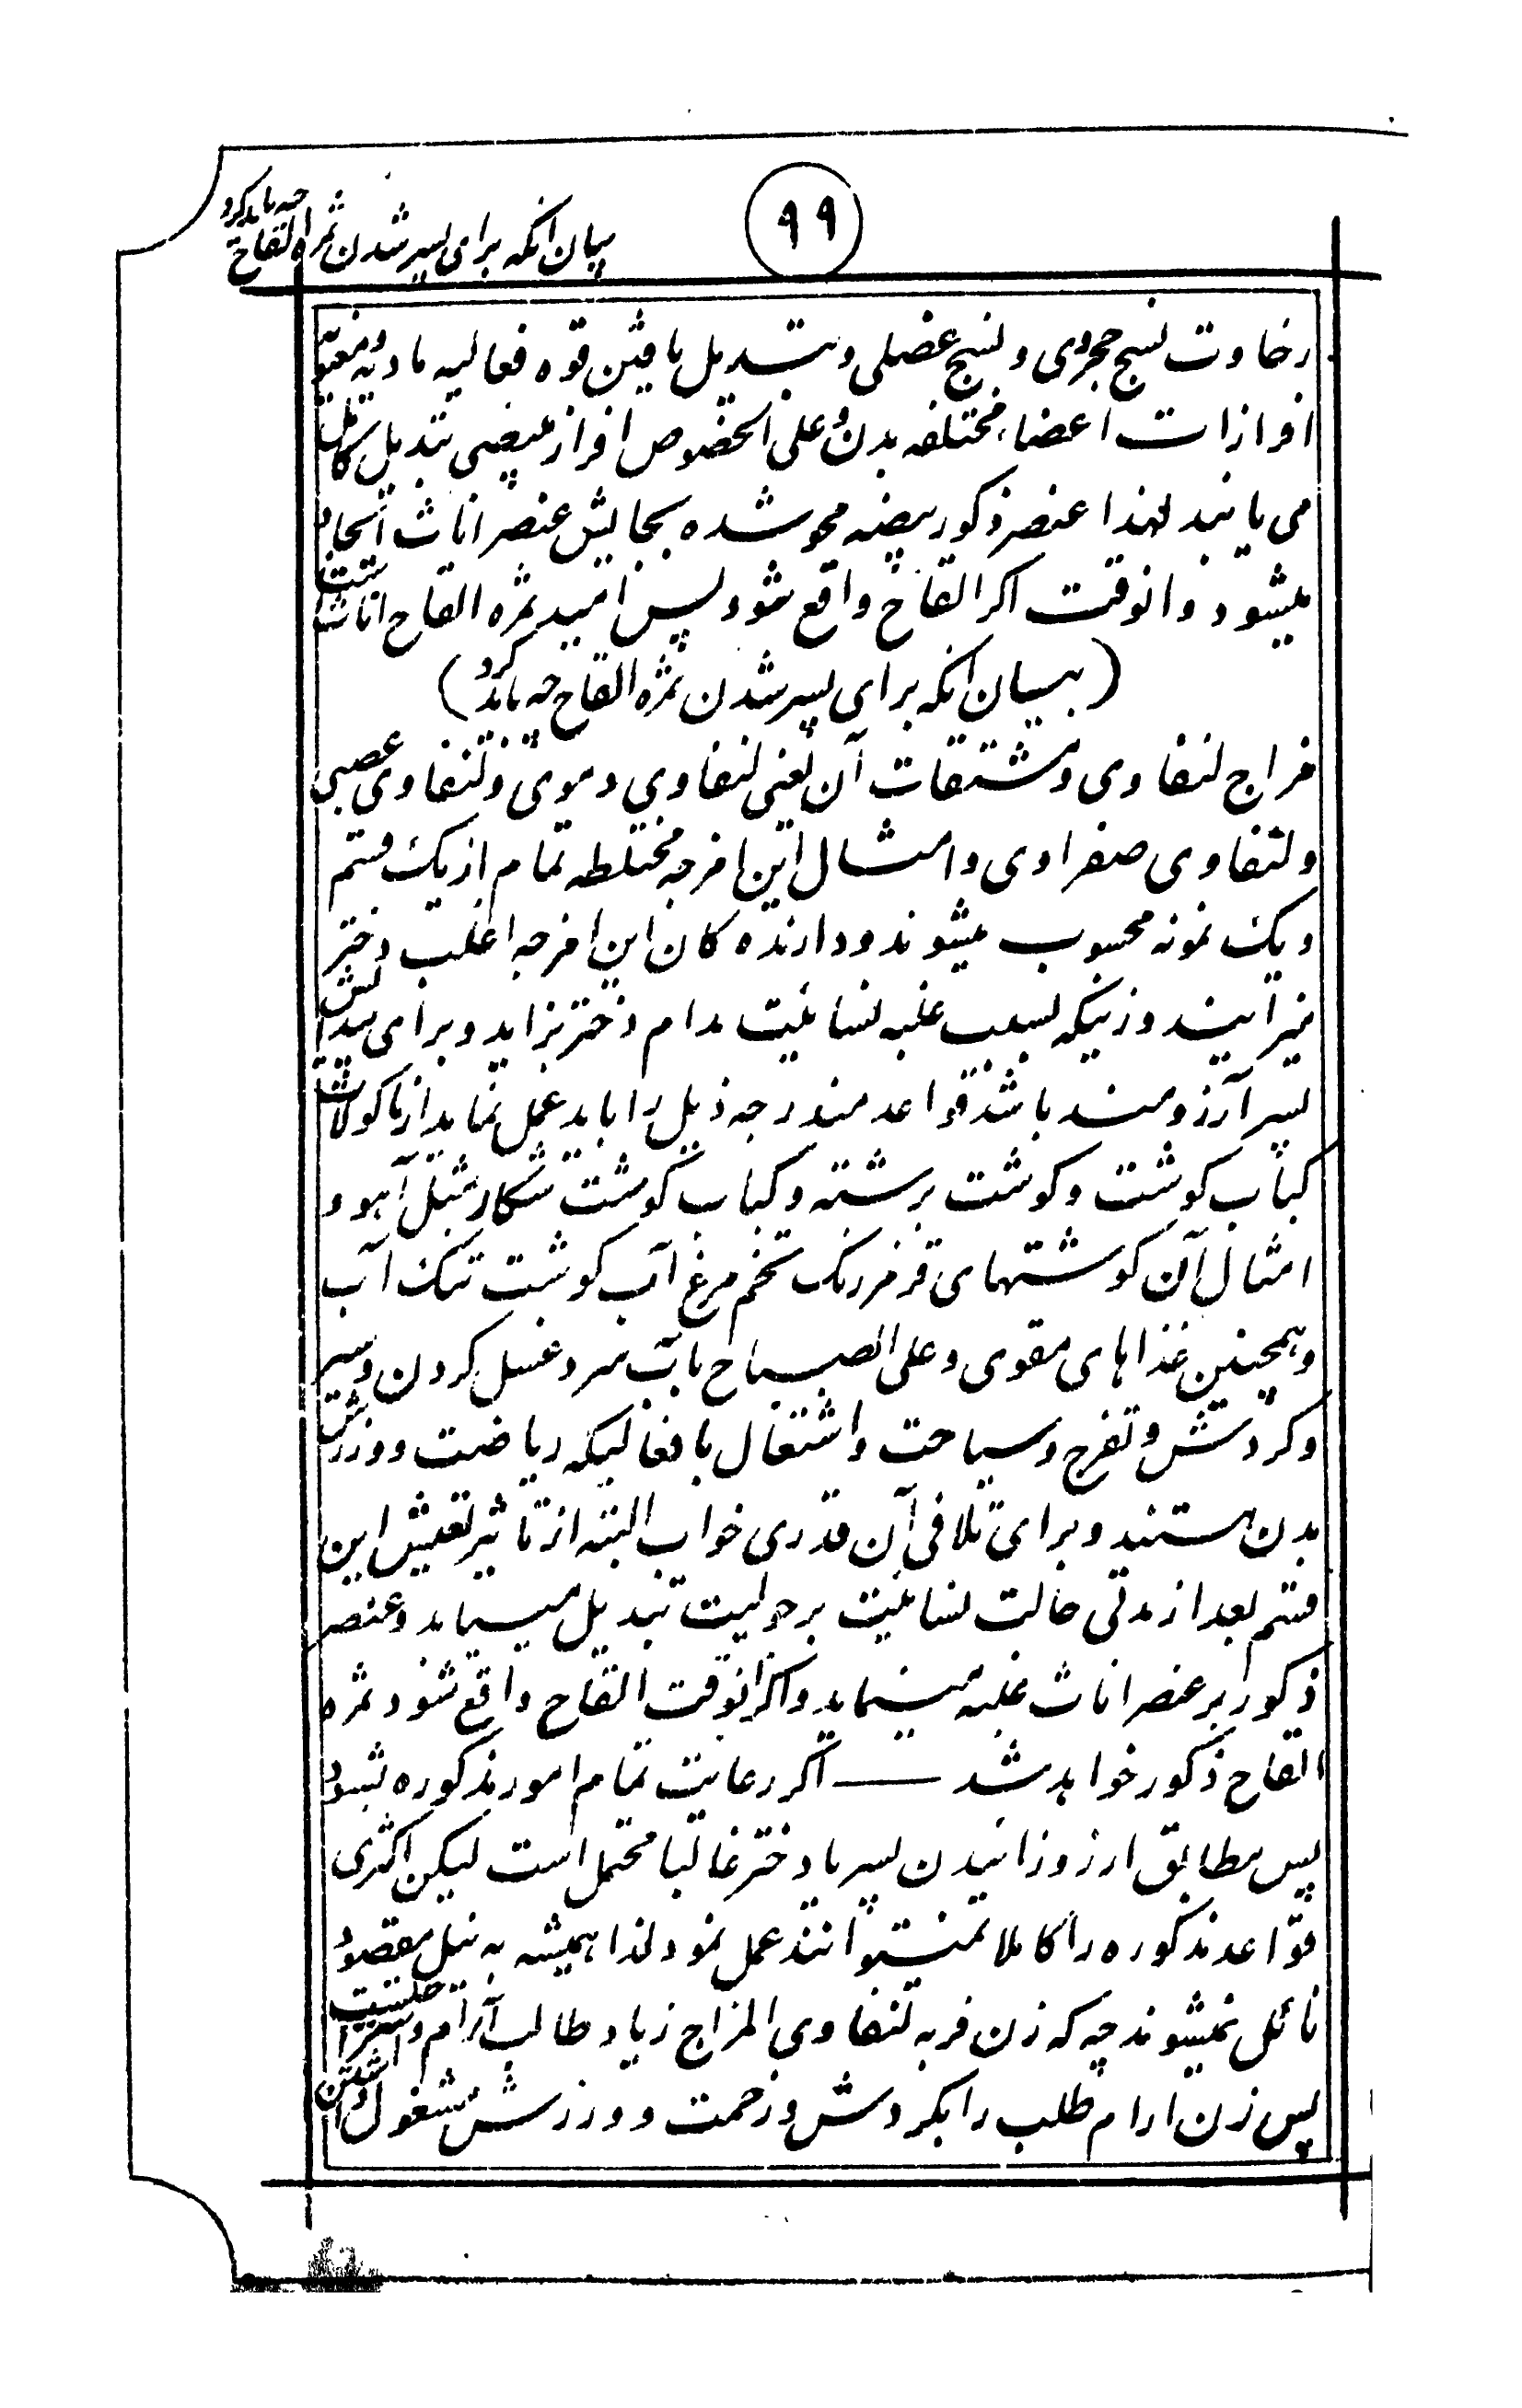 ۹۹
بیان انکه برای پسر شدن ثمره القاح چه باید کرد
رخاوت نسج حجروی و نسج عضلی و تبدیل یافتن قوه فعالیه مادیه و معنویه
افرازات اعضاء مختلفه بدن و علی الخصوص افراز مبیضی تبدیل کامل
می یابند لهذا عنصر ذکور بیضه محو شده بجایش عنصر اناث ایجاد
میشود و انوقت اکر القاح واقع شود پس امید ثمره القاح اناث است
(بیسان انکه برای پسر شدن ثمره القاح چه باید کرد)
مزاج لنفاوی و مشتقات آن یعنی لنفاوی دموی و لنفاوی عصبی
و لنفاوی صفراوی و امثال این امزجه مختلطه تمام از یک قسم
و یک نمونه محسوب میشوند و دارنده کان این امزجه اغلب دختر
میزایند و زنیکه بسبب غلبه نسائیت مدام دختر بزاید و برای پیدایش
پسر آرزومند باشد قواعد مندرجه ذیل را باید عمل نماید از ماکولات
کباب کوشت و کوشت برشته و کباب کوشت شکار مثل آهو و
امثال آن کوشتهای قرمز رنک تخم مرغ آب کوشت تنک آب
و همچنین غذاهای مقوی و علی الصباح باب سرد غسل کردن و سیر
و کردش و تفرج و سیاحت و اشتغال بافعالیکه ریاضت و ورزش
بدن هستند و برای تلافی آن قدری خواب البته از تاثیر تعیش این
قسم بعد از مدتی حالت نسائیت برجولیت تبدیل میسیابد و عنصر
ذکور بر عنصر اناث غلبه مینماید و اکر انوقت القاح واقع شود ثمره
القاح ذکور خواهد شد — اکر رعایت تمام امور مذکوره بشود
پس مطابق ارزو زائیدن پسر یا دختر غالبا محتمل است لیکن اکثری
قواعد مذکوره را کاملا نمیتوانند عمل نمود لذا همیشه به نیل مقصود
نائل نمیشوند چه که زن فربه لنفاوی المزاج زیاد طالب آرام و استراحتست
پس زن ارام طلب را بکردش و زحمت و ورزش مشغول داشتن